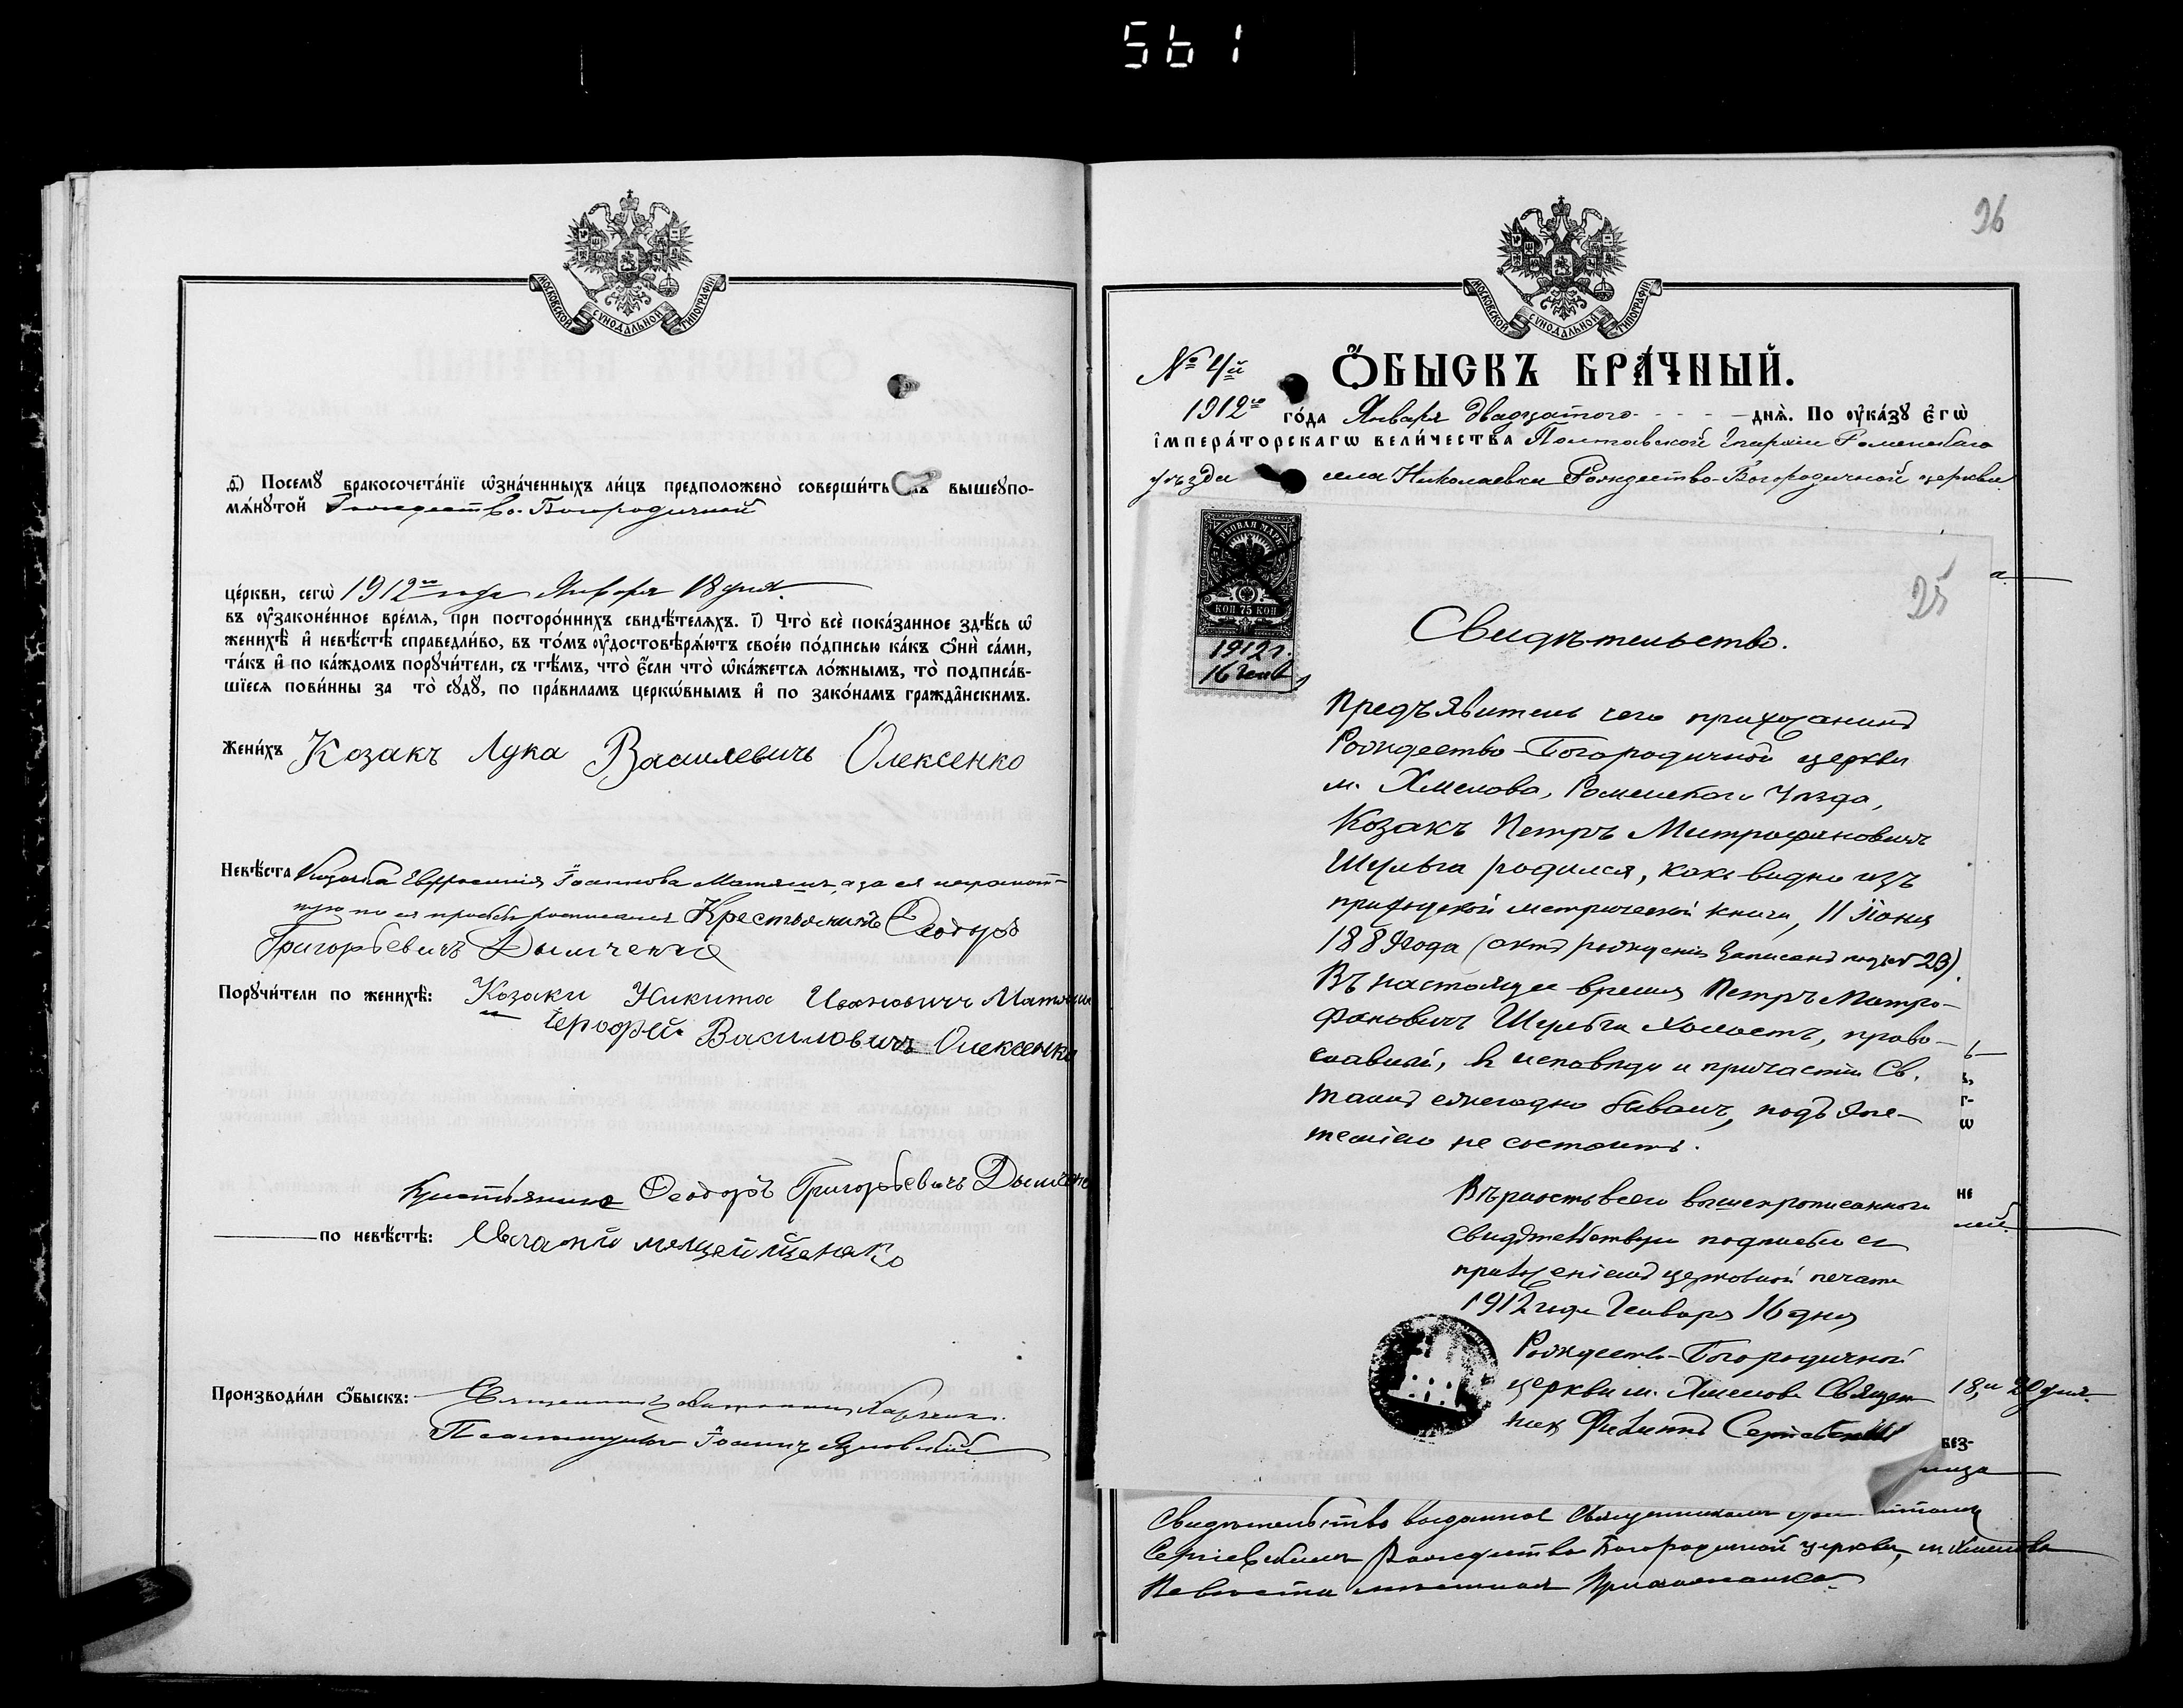 561
МОСКОВСКОЙ СѴНОДАЛЬНОЙ ТИПОГРАФІИ
д҃) Посемꙋ̀ бракосочета́нїе ѡ҆зна́ченныхъ ли́цъ предположено̀ соверши́ть въ вышеꙋпо-
мѧ́нꙋтой Рождество-Богородичной
це́ркви, сегѡ̀ 1912го года Января 18 дня.
въ ᲂу҆законе́нное вре́мѧ, при посторо́ннихъ свидѣ́телѧхъ. і҃) Что̀ всѐ пока́занное здѣ́сь ѡ҆
женихѣ̀ и҆ невѣ́стѣ справедли́во, въ то́мъ ᲂу҆достовѣрѧ́ютъ свое́ю по́дписью ка́къ ѻ҆нѝ са́ми,
та́къ и҆ по ка́ждомъ порꙋчи́тели, съ тѣ́мъ, что̀ є҆́сли что̀ ѡ҆ка́жетсѧ ло́жнымъ, то̀ подписа́в-
шїесѧ пови́нны за то̀ сꙋдꙋ̀, по пра́виламъ церкѡ́внымъ и҆ по зако́намъ гражда̑нскимъ.
Жени́хъ Козакъ Лука Василевичъ Олексенко
Невѣ́ста Козачка Евфросинія Іоаннова Матяшъ, а за ея неграмот-
ную по ея просьбѣ росписался Крестьянинъ Ѳеодоръ
Григорьевичъ Дымченко
Порꙋчи́тели по женихѣ̀: Козаки Никита Ивановичъ Матяшъ
и Ерофей Василовичъ Олексенко
Крестьянинъ Ѳеодоръ Григорьевичъ Дымченко
по невѣ́стѣ:
Производи́ли ѻ҆́быскъ: Священникъ
Псаломщикъ Іоаннъ
96
МОСКОВСКОЙ СѴНОДАЛЬНОЙ ТИПОГРАФІИ
№ 4й Ѻ҆́БЫСКЪ БРА́ЧНЫЙ.
1912го го́да Января двадцатого днѧ̀. По ᲂу҆ка́зꙋ Є҆гѡ̀
і҆мпера́торскагѡ вели́чества Полтавской Епархіи Роменскаго
уѣзда села Николаевки Рождество-Богородичной церкви
25
ГЕРБОВАЯ МАРКА
КОП 75 КОП
1912 г.
16 Генв.
Свидѣтельство.
Предъявитель сего прихожанинъ
Рождество-Богородичной церкви
м. Хмелова, Роменскаго Уѣзда,
Козакъ Петръ Митрофановичъ
Шульга родился, какъ видно изъ
приходской метрической книги, 11 Іюня
1889 года (актъ рожденія записанъ подъ № 29).
Въ настоящее время Петръ Митро-
фановичъ Шульга холостъ, право-
славный, въ исповѣди и причастіи Св.
Таинъ ежегодно бываетъ, подъ опе-
не состоитъ.
Вѣрность всего вышепрописаннаго
свидѣтельствую подписью съ
приложеніемъ церковной печати
1912 года Генваря 16 дня
Рождество-Богородичной
церкви м. Хмелова Священ-
никъ Сергіевскій
а
ъ
г-
ѡ
не
18, и 20 дня
без-
Свидѣтельство выданное Священникомъ
Сергіевскимъ Рождество Богородичной церкви, м. Хмелова
Невѣста мѣстная Прихожанка.